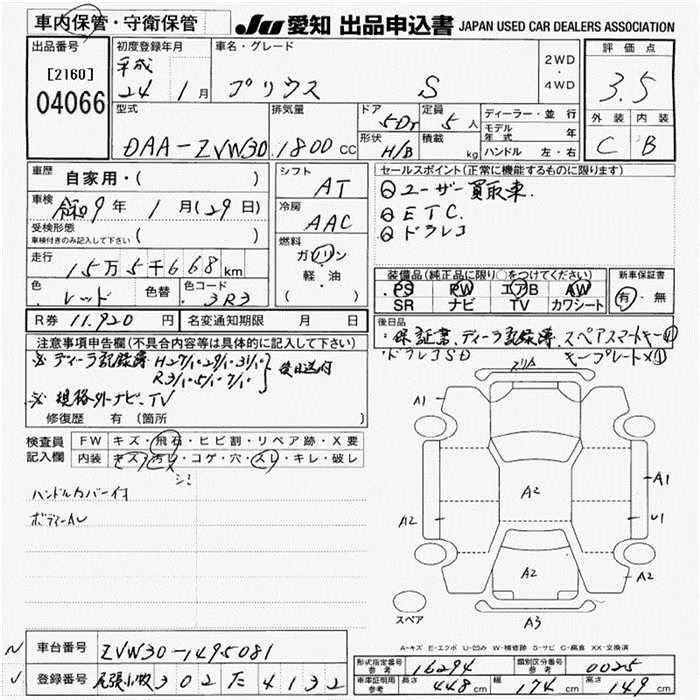 車内保管・守衛保管
JU 愛知 出品申込書 JAPAN USED CAR DEALERS ASSOCIATION
出品番号 初度登録年月 車名・グレード 評価点
[2160] 平成 2WD ・ 4WD
04066 24年 1月 プリウス S 3.5
型式 排気量 ドア 5Dr 定員 5人 ディーラー・並行 外装 内装
DAA-ZVW30 1800cc 形状 H/B 積載 kg モデル年式 年 C B
ハンドル 左・右
車歴 自家用・( ) シフト AT セールスポイント(正常に機能するものに限ります)
車検 令和9年 1月(29日) 冷房 AAC ユーザー買取車.
受検形態 ( ) ETC.
車検付きのみ記入して下さい 燃料 ドラレコ
走行 15万5千668km ガソリン
軽・油 装備品(純正品に限り○をつけてください) 新車保証書
色 レッド 色替 色コード 3R3 PS PW エアB AW 有・無
SR ナビ TV カワシート
R券 11,920円 名変通知期限 月 日 後日品
注意事項申告欄(不具合内容等は具体的に記入して下さい) ・保証書、ディーラ記録簿、スペアスマートキー①
※ディーラ記録簿 H27/1・29/1・31/1・ 後日送付 ・ドラレコSD キープレート×①
R3/1・5/1・7/1・
※規格外ナビ、TV
修復歴 有 (箇所 )
検査員 FW キズ・飛石・ヒビ割・リペア跡・X要
記入欄 内装 キズ・汚レ・コゲ・穴・スレ・キレ・破レ
シミ
ハンドルカバー付
ボディーAU
スリA
A1
A2 A1
A2 U1
A2 A2
スペア A3
A-キズ E-エクボ U-凹み W-補修跡 S-サビ C-腐食 XX-交換済
車台番号 ZVW30-1495081
登録番号 尾張小牧 302 た 4132
形式指定番号 参考 16294 類別区分番号 参考 0025
車庫証明用 参考 長さ 448cm 幅 174cm 高さ 149cm